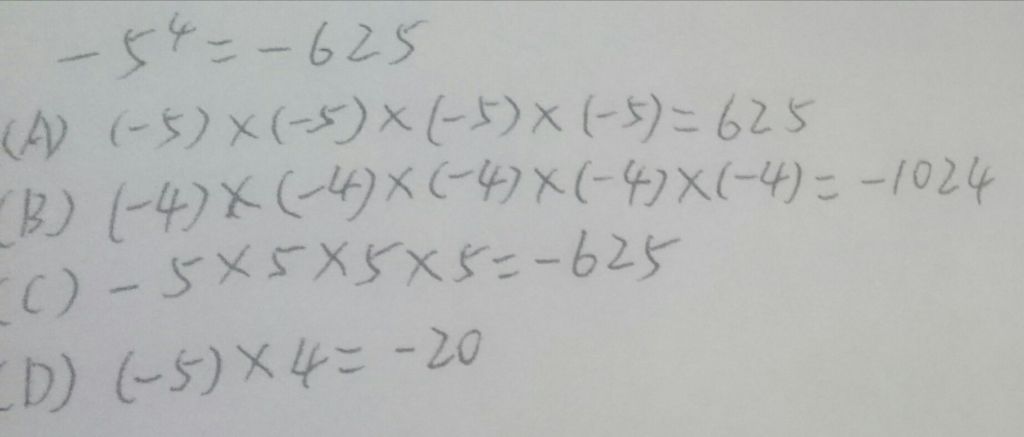 -5⁴=-625
(A) (-5)×(-5)×(-5)×(-5)=625
(B) (-4)×(-4)×(-4)×(-4)×(-4)=-1024
(C) -5×5×5×5=-625
(D) (-5)×4=-20